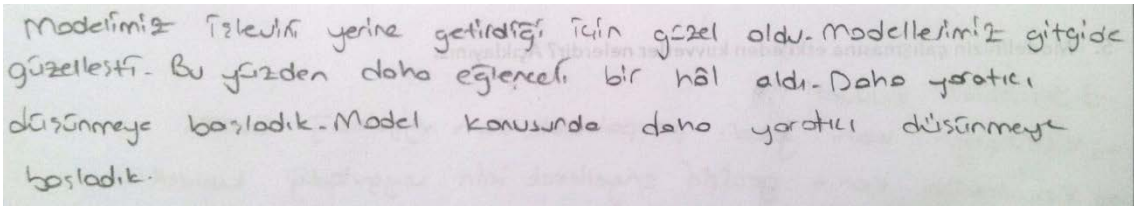 Modelimiz işlevini yerine getirdiği için güzel oldu. Modellerimiz gitgide
güzelleşti. Bu yüzden daha eğlenceli bir hâl aldı. Daha yaratıcı
düşünmeye başladık. Model konusunda daha yaratıcı düşünmeye
başladık.